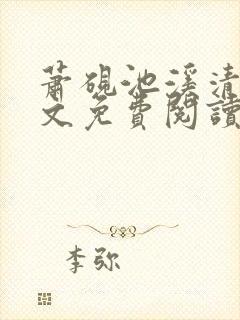 蕭硯池溪清
文免費閱讀
李弥